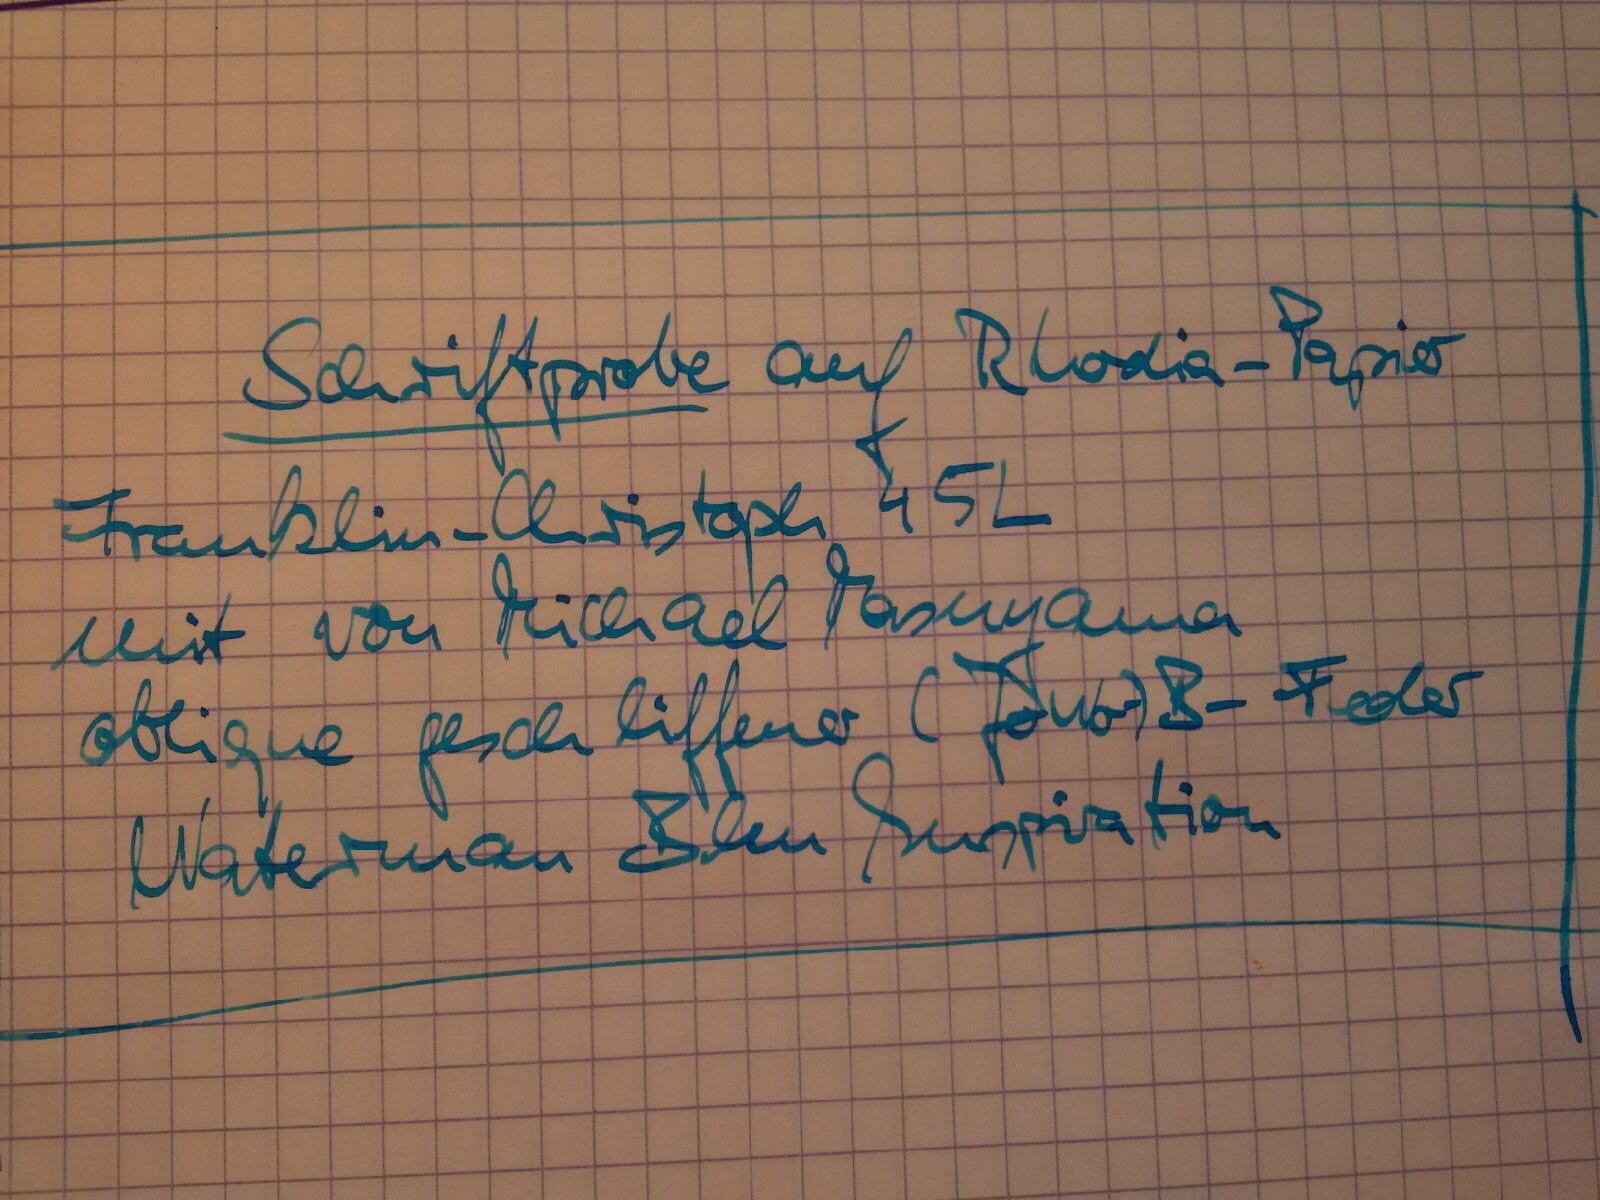 Schriftprobe auf Rhodia-Papier
Franklin-Christoph 45L
mit von Michael Masuyama
oblique geschliffener (Jowo-) B-Feder
Waterman Bleu Inspiration